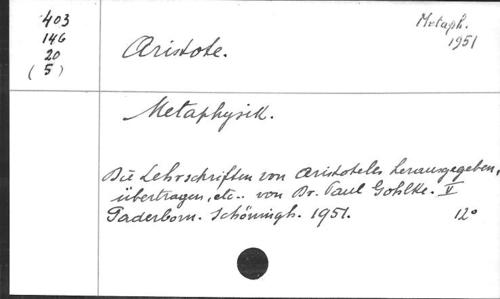 403
146
20
(5)
Metaph.
1951
Aristote.
Metaphysik.
Die Lehrschriften von Aristoteles herausgegeben,
übertragen, etc.. von Dr. Paul Gohlke. V
Paderborn. Schöningh. 1951. 12°